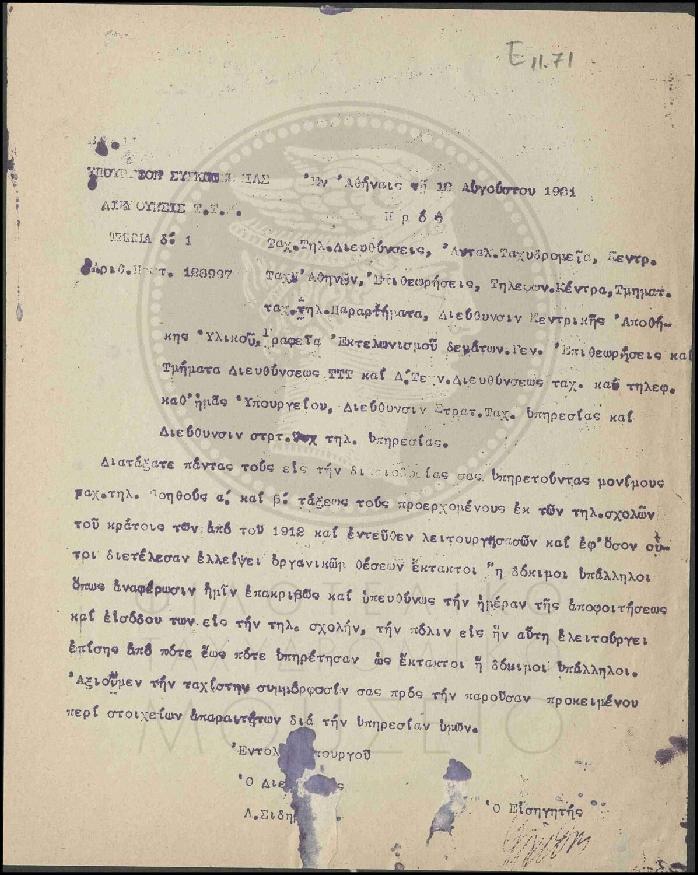 Ε 11.71
ΒΑ.
ΥΠΟΥΡΓΕΙΟΝ ΣΥΓΚΟΙΝΩΝΙΑΣ Ἐν Ἀθήναις τῇ 12 Αὐγούστου 1921
ΔΙΕΥΘΥΝΣΙΣ Τ.Τ.Τ. Πρός
Ἀριθ.Πρωτ. 128997 Ταχ.Τηλ.Διευθύνσεις, Ἀνταλ.Ταχυδρομεῖα, Κεντρ.
Ταχ. Ἀθηνῶν, Ἐπιθεωρήσεις, Τηλεφων.Κέντρα, Τμηματ.
ταχ.τηλ.Παραρτήματα, Διεύθυνσιν Κεντρικῆς Ἀποθή-
κης Ὑλικοῦ, Γραφεῖα Ἐκτελωνισμοῦ δεμάτων.Γεν. Ἐπιθεωρήσεις καὶ
Τμήματα Διευθύνσεως ΤΤΤ καὶ Δ.Τεχν.Διευθύνσεως ταχ. καὶ τηλεφ.
καθ'ἡμᾶς Ὑπουργείου, Διεύθυνσιν Στρατ.Ταχ. ὑπηρεσίας καὶ
Διεύθυνσιν στρτ. τηλ. ὑπηρεσίας.
Διατάξατε πάντας τούς εἰς τήν δικαιοδοσίας σας ὑπηρετοῦντας μονίμους
ταχ.τηλ. βοηθούς α. καί β. τάξεως τούς προερχομένους ἐκ τῶν τηλ.σχολῶν
τοῦ κράτοις τῶν ἀπό τοῦ 1912 καί ἐντεῦθεν λειτουργησασῶν καί ἐφ'ὅσον οὗ-
τρι διετέλεσαν ἐλλείψει ὀργανικῶμ θέσεων ἔκτακτοι ἤ δόκιμοι ὑπάλληλοι
ὅπως ἀναφέρωσιν ἡμῖν ἐπακριβῶς καί ὑπευθύνως τήν ἡμέραν τῆς ἀποφοιτήσεως
καί εἰσόδου των εἰς τήν τηλ. σχολήν, τήν πόλιν εἰς ἥν αὕτη ἐλειτούργει
ἐπίσης ἀπό πότε ἕως πότε ὑπηρέτησαν ὡς ἔκτακτοι ἤ δόμιμοι ὑπάλληλοι.
Ἀξιοῦμεν τήν ταχίστην συμμόρφωσίν σας πρός τήν παροῦσαν προκειμένου
περί στοιχείων ἀπαραιτήτων διά τήν ὑπηρεσίαν ὑμῶν.
Ἐντολῇ Ὑπουργοῦ
Ὁ
ὁ Εἰσηγητής